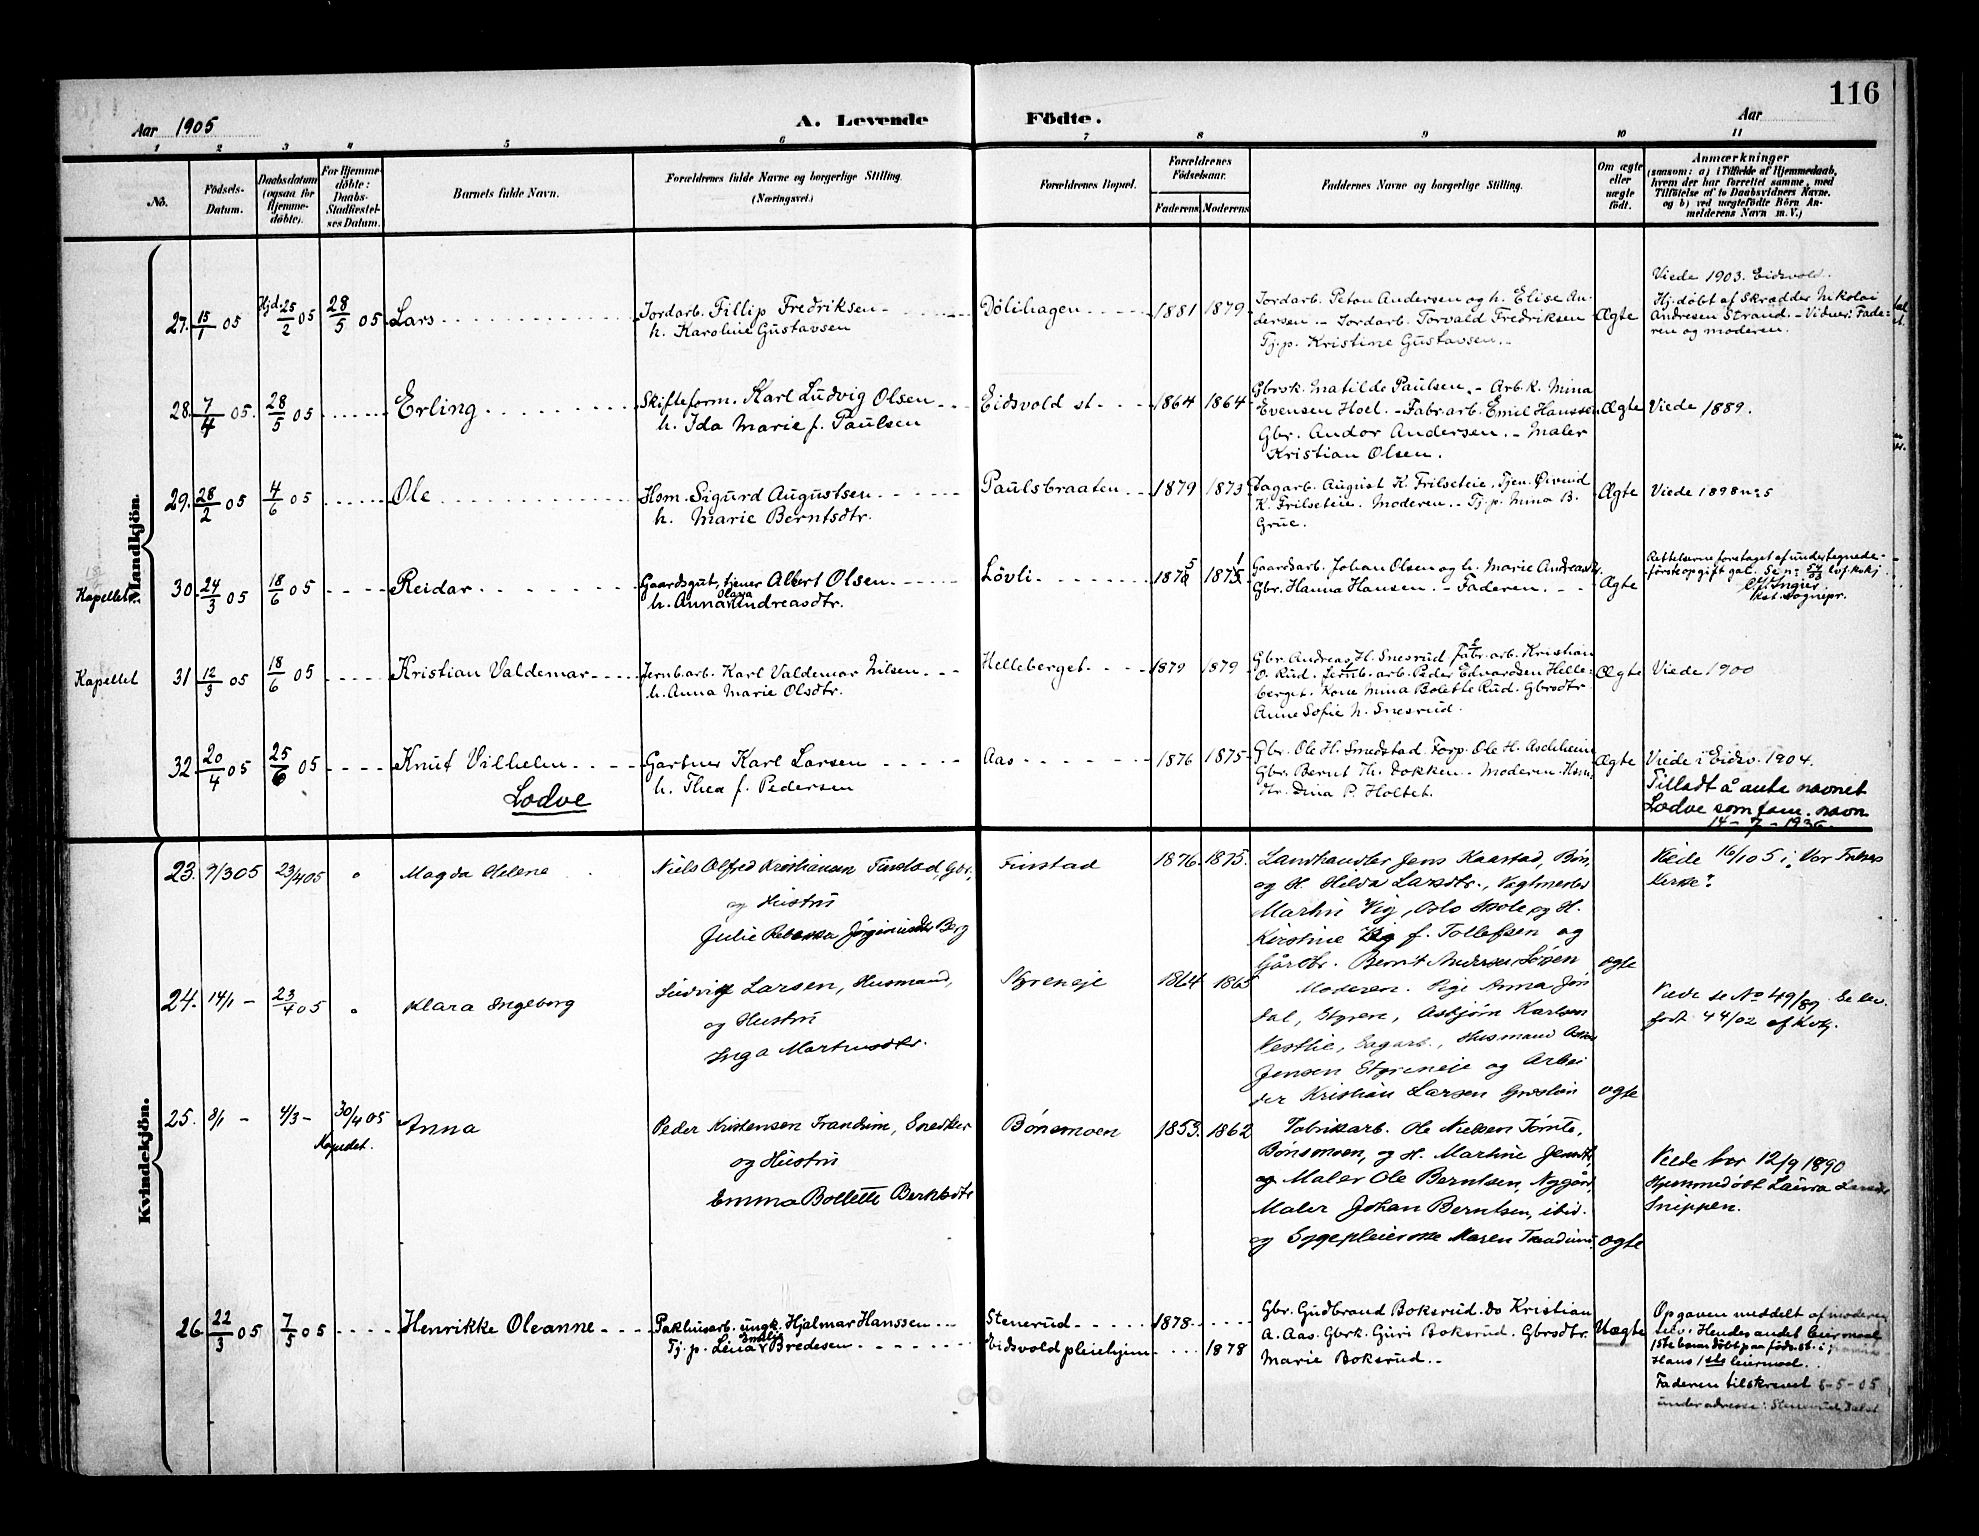 116
Aar 1905
A. Levende
Födte.
Aar
1 2 3 4 5 6 7 8 9 10 11
No.
Födsels-
Datum.
Daabsdatum
(ogsaa for
Hjemme-
döbte).
For Hjemme-
döbte:
Daabs-
Stadfæstel-
ses Datum.
Barnets fulde Navn.
Forældrenes fulde Navne og borgerlige Stilling.
(Næringsvei.)
Forældrenes Bopæl.
Forældrenes
Födselsaar.
Faderens Moderens
Faddernes Navne og borgerlige Stilling.
Om ægte
eller
uægte
födt.
Anmærkninger
(saasom: a) i Tilfælde af Hjemmedaab,
hvem der har forrettet samme, med
Tilföielse af to Daabsvidners Navne,
og b) ved uægtefödte Börn An-
melderens Navn m. V.)
Mandkjön.
27. 15/1 05 Hjd. 25/2 05 28/5 05 Lars
Jordarb. Fillip Fredriksen
h. Karoline Gustavsen
Dölihagen 1881 1879
Jordarb. Peton Andersen og h. Elise An-
dersen - Jordarb. Torvald Fredriksen
Tj.p. Kristine Gustavsen.
Ægte
Viede 1903. Eidsvold.
Hj. döbt af Skrædder Nikolai
Andresen Strand. - Vidner: Fade-
ren og moderen.
28. 7/4 05. 28/5 05 Erling
Skifteform. Karl Ludvig Olsen
h. Ida Marie f. Paulsen
Eidsvold st 1864 1864
Gbrsk. Matilde Paulsen. - Arb. k. Mina
Evensen Hoel. - Fabr. arb. Emil Hanssen
Gbr. Andor Andersen. - Maler
Kristian Olsen.
Ægte Viede 1889.
29. 28/2 05 4/6 05 Ole
Hsm. Sigurd Augustsen
h. Marie Berntsdtr.
Paulsbraaten 1879 1873
Dagarb. August K. Frilseteie. Tjen. Øivind
K. Frilseteie. Moderen. - Tj. p. Mina B.
Grue.
Ægte Viede 1898 n: 5
Kapellet 30. 24/3 05 18/6 05 Reidar
Gaardsgut, tjener Albert Olsen
h. Anna Olava Andreasdtr.
Lövli 1875 1871
Gaardsarb. Johan Olsen og h. Marie Andreasdtr.
Gbr. Hanna Hansen. - Faderen.
Ægte
Rettelserne foretaget af undertegnede-
Kst. Sognepr.
Kapellet 31 12/3 05 18/6 05 Kristian Valdemar
Jernb.arb. Karl Valdemar Nilsen
h. Anna Marie Olsdtr.
Helleberget 1879 1879
Gbr. Andreas H. Snesrud Fabr. arb. Kristian
O. Rud. Jernb. arb. Peder Edvardsen Helle-
berget. Kone Mina Bolette Rud. Gbrsdtr
Anne Sofie N. Snesrud.
Ægte Viede 1900
32 20/4 05 25/6 05 Knut Vilhelm
Lodve
Gartner Karl Larsen
h. Thea f. Pedersen
Aas 1876 1875
Gbr. Ole H. Smedstad Forp. Ole H. Aschheim
Gbr. Bernt Th. Dokken. - Moderen. Hsm.
dtr. Dina P. Holtet.
Ægte Viede i Eidsv. 1904.
Tilladt å anta navnet
Lodve som fam. navn
14 - 7 - 1936.
Kvindekjön.
23. 9/3 05 23/4 05 Magda Helene
Niels Olfred Kristiansen Finstad, Gbr.,
og Hustru
Julie Rebekka Jörginusdtr Berg
Finstad 1876. 1875.
Landhandler Jens Kaarstad, Bön,
og H. Hilda Larsdtr., Vagtmester
Martin Vig, Oslo Skole og H.
Kirstine Vig f. Tollefsen og
Gårdbr. Bernt Andersen Løken
ægte
Viede 16/10 5 i Vor Frelsers
Kirke.
24. 14/1 - 23/4 05 Klara Ingeborg
Ludvig Larsen, Husmand,
og Hustru
Inga Martinsdtr.
Styreneje 1864 1865
Moderen. Pige Anna Jön
dal, Styren, Asbjørn Karlsen
Vestlie, Sagarb., Husmand
Jensen Styreneie og Arbei
der Kristian Larsen
ægte
Viede se No 49/89. Se lev.
födt 44/02 af Kvkj.
25. 8/1 - 4/3 - 30/4 05
Kapellet.
Anna
Peder Kristensen Trandum, Snedker
og Hustru
Emma Bollette
Bönsmoen 1853. 1862
Fabrikarb. Ole Nielsen Tømte,
Bönsmoen, og H. Martine Jensdtr,
og Maler Ole Berntsen, Nygård,
Maler Johan Berntsen, ibid.
og Sygepleierske Maren Trandum.
ægte
Viede her 12/9 1890
Hjemmedöbt Laura Larsdtr
Snippen.
26 22/3 05 7/5 05 Henrikke Oleanne
Pakhusarb. ungk. Hjalmar Hanssen
Tj. p. Lina Emilie Bredesen
Stenerud 1878.
Eidsvold pleiehjem 1878
Gbr. Gudbrand Boksrud. do Kristian
A. Aas. Gbrk. Guri Boksrud. Gbrsdtr.
Marie Boksrud.
Uægte
Opgaven meddelt af moderen
selv: Hendes andet leiermaal
1ste barn döbt paa föds. st. i
Hans 1ste leiermaal.
Faderen tilskrevet 8-5-05
under adresse: Stenerud, Dalst